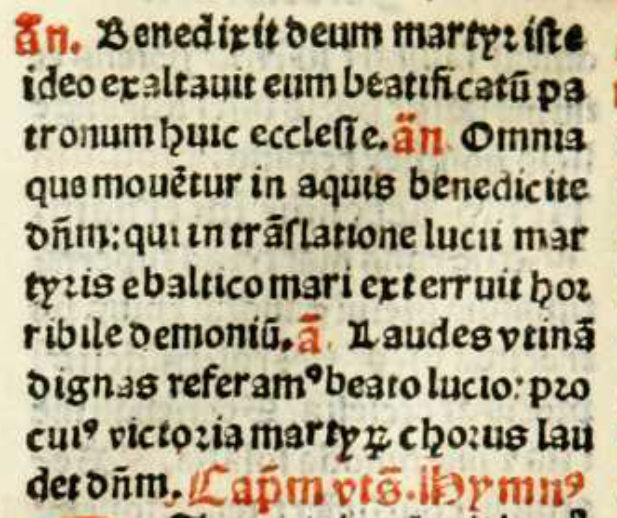 añ. Benedixit deum martyr iste
ideo exaltauit eum beatificatũ pa
tronum huic ecclesie. añ. Omnia
que mouẽtur in aquis benedicite
dñm: qui in trãslatione lucii mar
tyris e baltico mari exterruit hor
ribile demoniũ. ã. Laudes vtinã
dignas referamꝰ beato lucio: pro
cuiꝰ victoria martyꝝ chorus lau
det dñm. Cap̃m vts̃. Hymnꝰ